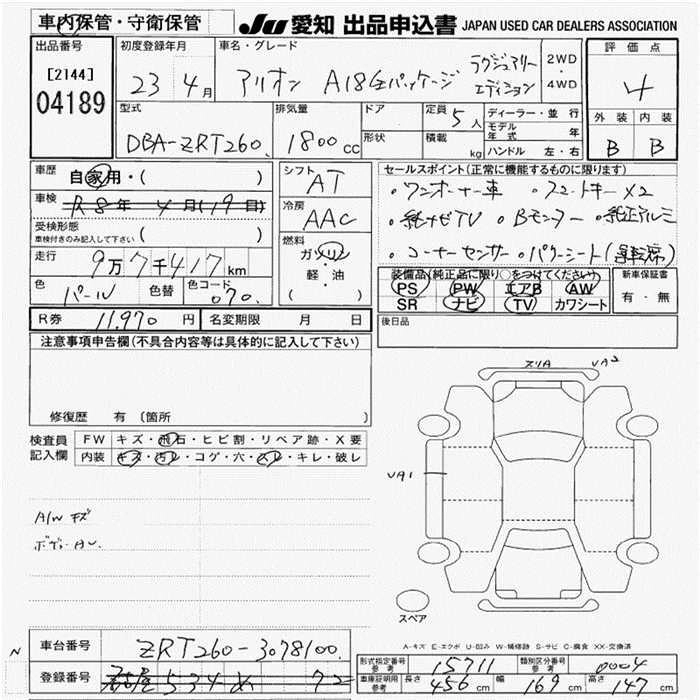 車内保管・守衛保管 JU 愛知 出品申込書 JAPAN USED CAR DEALERS ASSOCIATION
出品番号 初度登録年月 車名・グレード 2WD・4WD 評価点
[2144] 23年4月 アリオン A18Gパッケージ ラグジュアリーエディション 4
04189
型式 排気量 ドア 定員 5人 ディーラー・並行 外装 内装
DBA-ZRT260 1800cc 形状 積載 kg モデル年式 年 B B
ハンドル 左・右
車歴 自家用・( ) シフト AT セールスポイント(正常に機能するものに限ります)
車検 R8年4月(19日) 冷房 AAC ・ワンオーナー車 ・スマートキー×2
受検形態 車検付きのみ記入して下さい ( ) ・純ナビTV ・Bモニター ・純正アルミ
走行 9万7千417km 燃料 ガソリン・軽・油 ( ) ・コーナーセンサー ・パワーシート(運転席)
色 パール 色替 色コード 070 装備品(純正品に限り○をつけてください) 新車保証書
PS PW エアB AW 有・無
SR ナビ TV カワシート
R券 11,970円 名変期限 月 日 後日品
注意事項申告欄(不具合内容等は具体的に記入して下さい)
修復歴 有 〔箇所
検査員記入欄 FW キズ・飛石・ヒビ割・リペア跡・X要
内装 キズ・汚レ・コゲ・穴・スレ・キレ・破レ
スリA VA2
VA1
A/W キズ
ボディーAU
スペア
A-キズ E-エクボ U-凹み W-補修跡 S-サビ C-腐食 XX-交換済
N
車台番号 ZRT260-3078100
登録番号 名古屋 534 め 72
型式指定番号 参考 15711 類別区分番号 参考 0004
車庫証明用 参考 長さ 456cm 幅 169cm 高さ 147cm